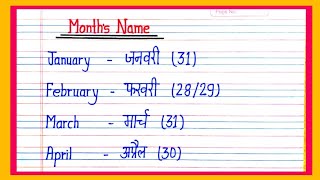 Page No.
Month's Name
January - जनवरी (31)
February - फरवरी (28/29)
March - मार्च (31)
April - अप्रैल (30)